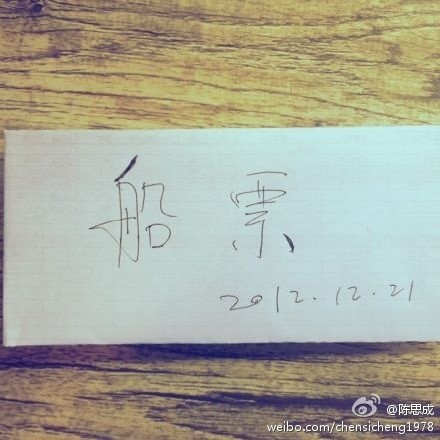 船票
2012.12.21
@陈思成
weibo.com/chensicheng1978